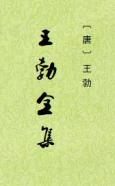 〔唐〕王勃
王勃全集